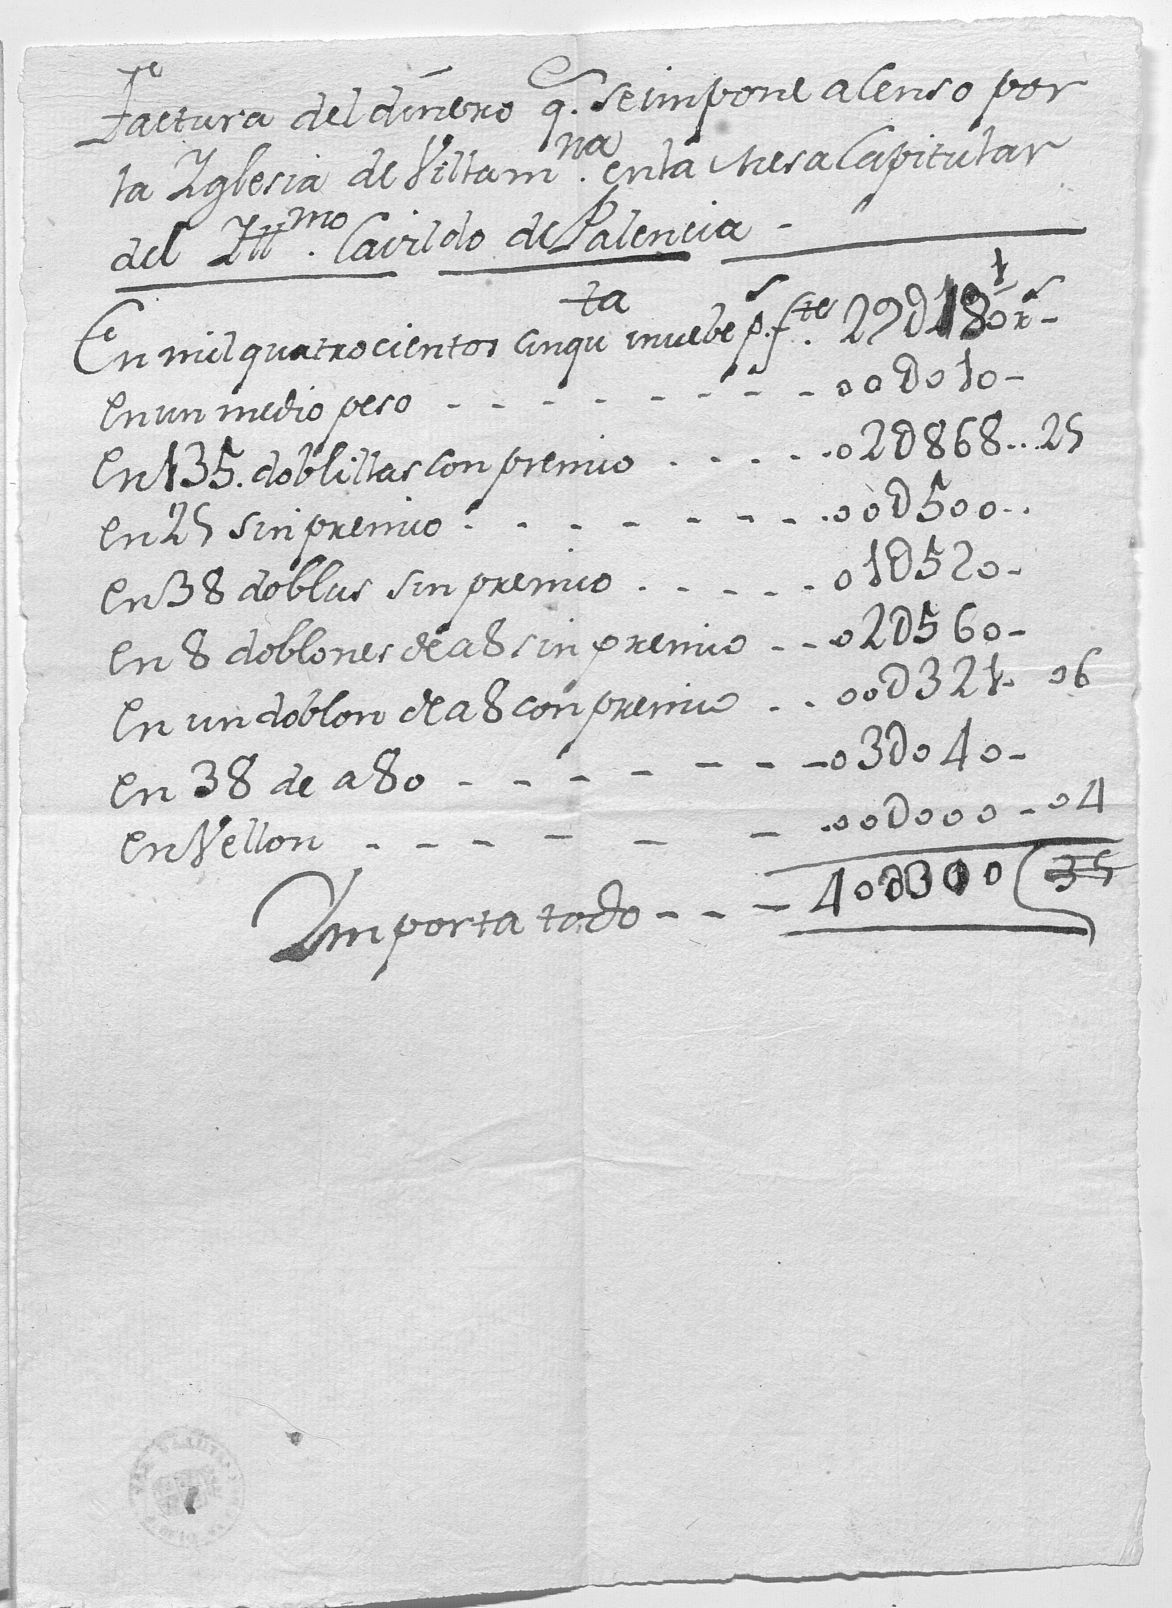 Factura del dinero q. se impone a Censo por
la Yglesia de Villamna. en la Mesa Capitular
del Illmo. Cavildo de Palencia -
En mil quatrocientos cinquta inuebe ps. ftes. 29D180 rs -
En un medio peso - - - - - - - - - 00D010 -
En 135. doblillas con premio . . . . . . 02D868... 25
en 25 sin premio - - - - - - - - 00D500..
en 38 doblas sin premio . . . . . 01D520 -
en 8 doblones de a 8 sin premio - - 02D560 -
En un doblon de a 8 con premio . . 00D321. 06
En 38 de a 80 - - - - - - - 03D040 -
en Vellon - - - - - - - 00D000 - 04
Ymporta todo - - - 40D300 ( 35